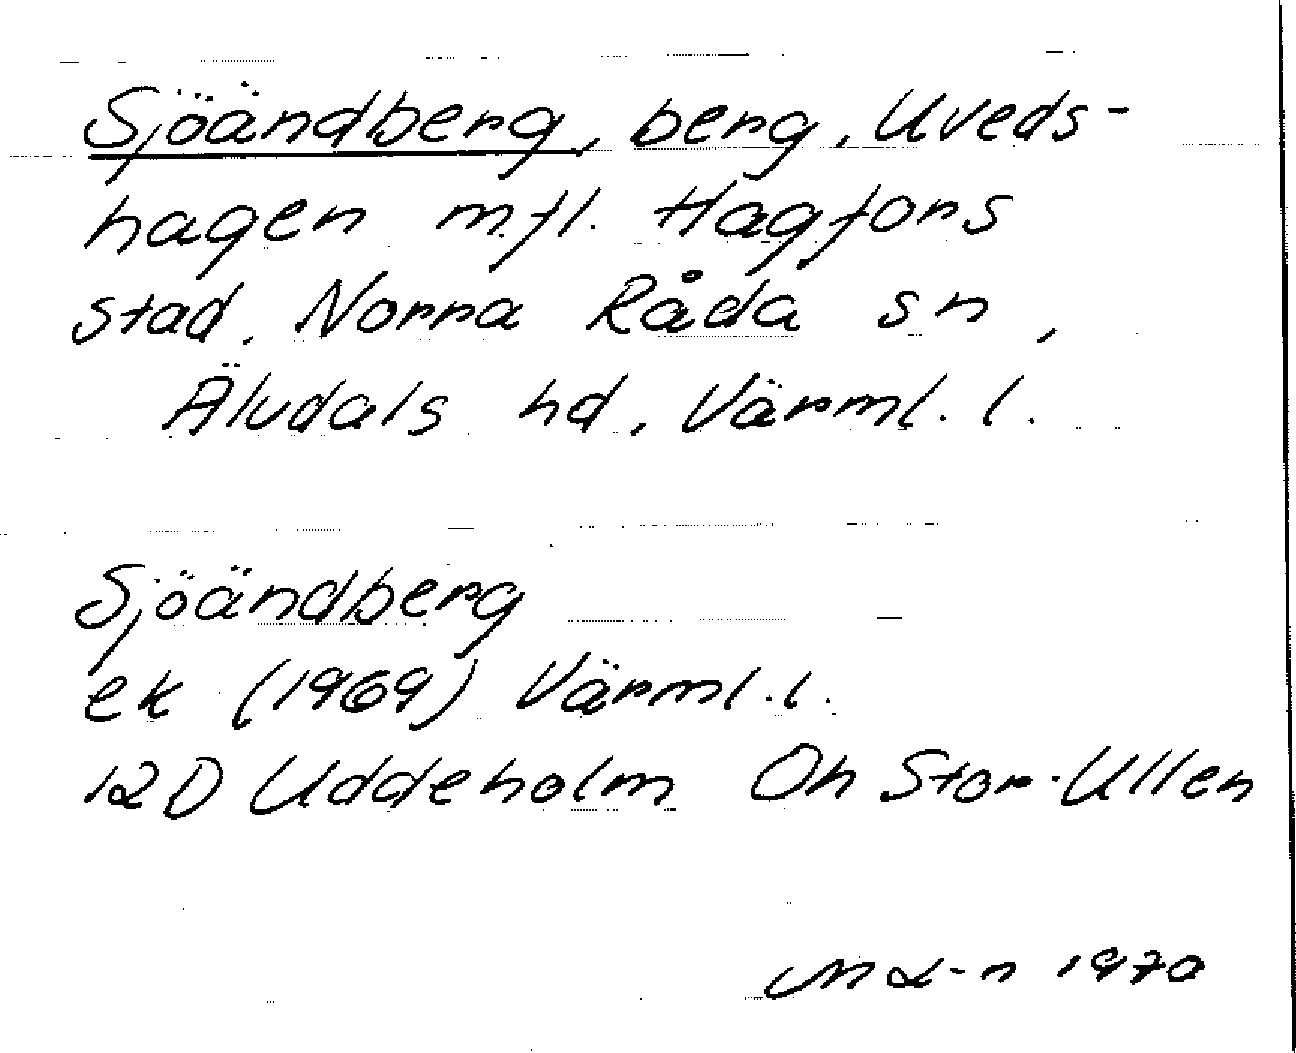 Sjöändberg, berg, Uveds-
hagen m.fl. Hagfors
stad, Norra Råda sn,
Älvdals hd, Värml. l.
Sjöändberg
ek (1969) Värml. l.
12D Uddeholm Öh Stor-Ullen
1970